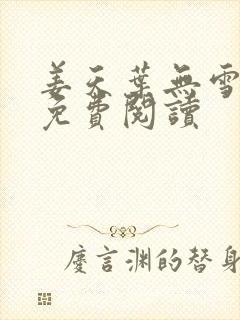 姜天葉無雪
免費閱讀
慶言淵的替身